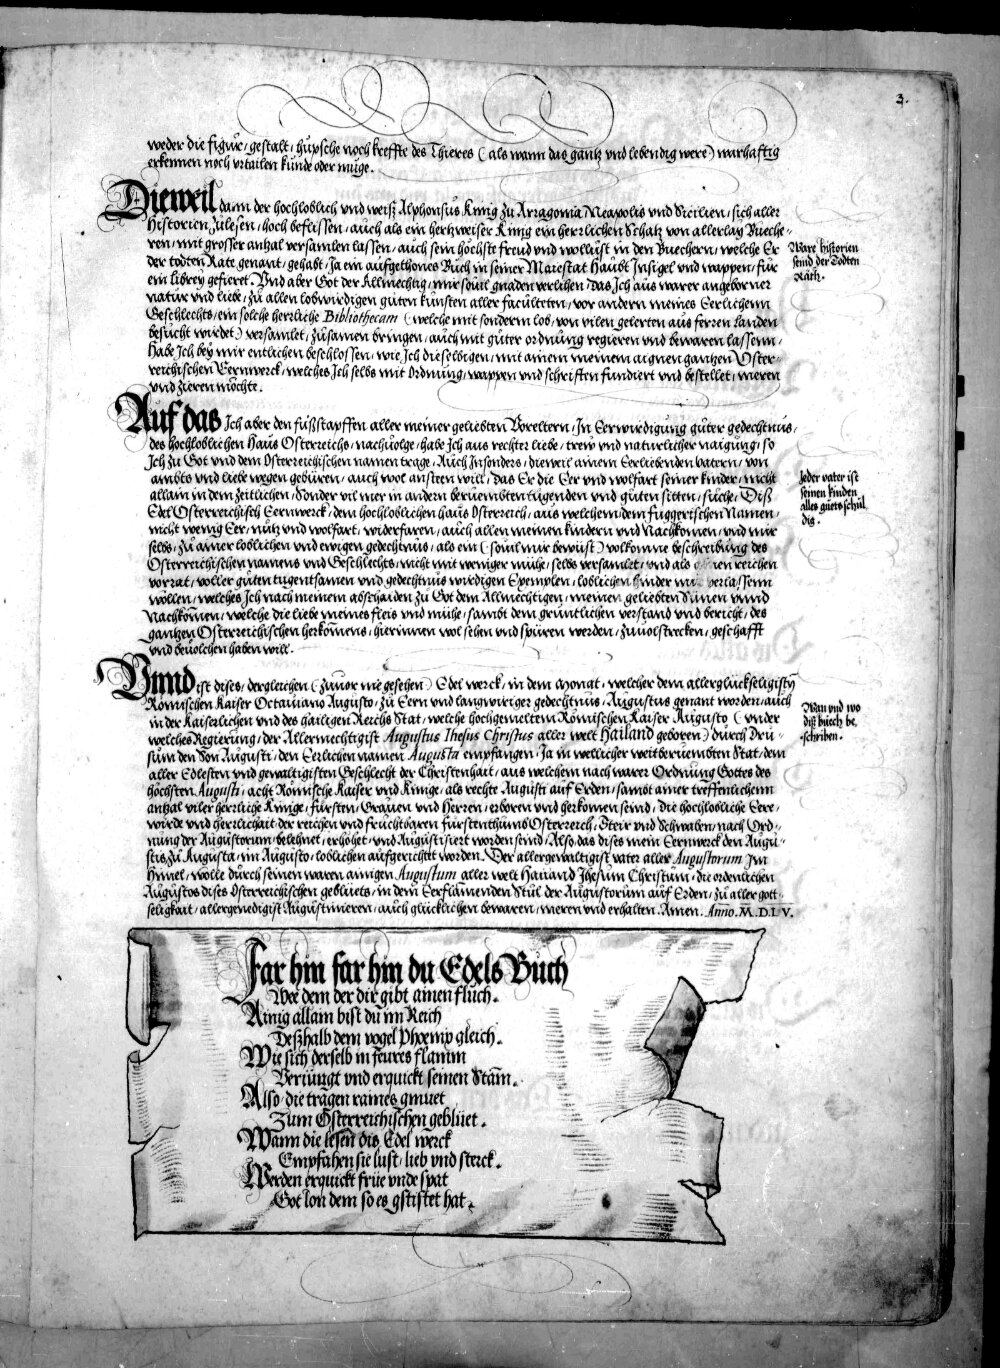 3.
weder die figur/ gestalt/ hupsche noch kreffte des Thieres ( als wann das gantz vnd lebendig were ) warhafftig
erkennen noch vrtailen kunde oder muge.
Dieweil dann der hochloblich vnd weiß Alphonsus Kunig zu Arragonia Neapolis vnd Sicilien/ sich aller
Historien zulesen/ hoch beflissen/ auch als ein hertzweiser Kunig ein herrlichen Schatz von allerlay Bueche-
ren/ mit grosser antzal versamlen lassen/ auch sein höchste freud vnd wollust in den Buechern/ welche Er
der todten Räte genant/ gehabt/ Ja ein aufgethones Buch in seiner Maiestat Haubt Insigel vnd wappen/ fur
ein librey gefieret. Vnd aber Got der Allmechtig/ mir souil gnaden verlihen/ das Ich aus warer angeborner
natur vnd liebe/ zu allen lobwirdigen guten kunsten aller faculteten/ vor andern meines Eerlichenn
Geschlechts/ ein solche herrliche Bibliothecam ( welche mit sonderm lob/ von vilen gelerten aus ferren landen
besucht wirdet ) versamlet/ zusamen bringen/ auch mit guter ordnung regieren vnd bewaren lassenn/
Habe Ich bey mir entlichen beschlossen/ wie Ich dieselbigen/ mit ainem meinem aignen gantzen Oster-
reichischen Eernwerck/ welches Ich selbs mit Ordnung/ wappen vnd schrifften fundiert vnd bestellet/ meren
vnd zieren möchte.
Ware historien
seind der Todten
Räth.
Auf das Ich aber den fußstapffen aller meiner geliebten Voreltern/ In Eerwirdigung guter gedechtnus/
des hochloblichen Haus Osterreichs/ nachuolge/ habe Ich aus rechter liebe/ trew vnd naturlicher naigung/ so
Ich zu Got vnd dem Osterreichischen namen trage/ Auch Insonders/ dieweil ainem Eerliebenden vatern/ von
ambts vnd liebe wegen geburen/ auch wol ansten will/ das Er die Eer vnd wolfart seiner kinder/ nicht
allain in dem zeitlichen/ Sonder vil mer in andern beruembten tugenden vnd guten sitten/ suche/ Diß
Edel Osterreichisch Eernwerck/ dem hochloblichen haus Osterreich/ aus welchem/ dem fuggerischen Namen/
nicht wenig Eer/ nutz vnd wolfart/ widerfaren/ auch allen meinen kindern vnd Nachkomen/ vnd mir
selbs/ zu ainer loblichen vnd ewigen gedechtnus/ als ein ( souil mir bewust ) volkomne beschreibung des
Osterreichischen namens vnd Geschlechts/ nicht mit weniger mühe/ selbs versamlet/ vnd als reichen
vorrat/ voller guten tugentsamen vnd gedechtnus wirdigen Exemplen/ loblichen hinder verlassenn
wöllen/ welches Ich nach meinem abschaiden zu Got dem Allmechtigen/ meinen geliebten Sünen vnnd
Nachkomen/ welche die liebe meines fleis vnd mühe/ sambt dem gruntlichen verstand vnd bericht/ des
gantzen Osterreichischen herkomens/ hierinnen wol sehen vnd spüren werden/ zuuolstrecken/ geschafft
vnd beuolchen haben will.
Jeder vater ist
seinen kinden
alles guets schul
dig.
Vnnd ist dises/ dergleichen ( zuuor nie gesehen ) Edel werck/ in dem Monat/ welcher dem allerglückseligisten
Römischen Kaiser Octauiano Augusto/ zu Eern vnd langwiriger gedechtnus/ Augustus genant worden/ auch
in der Kaiserlichen vnd des hailigen Reichs Stat/ welche hochgemeltem Römischen Kaiser Augusto ( vnder
welches Regierung/ der Allermechtigist Augustus Ihesus Christus aller welt Hailand geboren ) durch Dru-
sum den Son Augusti/ den Eerlichen namen Augusta empfangen. Ja in wellicher weitberuembten Stat/ dem
aller Edlesten vnd gewaltigisten Geschlecht der Christenhait/ aus welchem nach warer Ordnung Gottes des
höchsten Augusti/ acht Römische Kaiser vnd Kinige/ als rechte Augusti auf Erden/ sambt ainer treffenlichenn
antzal viler herrliche Kinige/ fursten/ Grauen vnd Herren/ erboren vnd herkomen seind/ die hochlobliche Eere/
wirde vnd herrlichait der reichen vnd fruchtbaren furstenthumb Osterreich/ Steir vnd Schwaben/ nach Ord-
nung der Augustorum belehnet/ erhöhet/ vnd Augustisiert worden seind/ Also das dises mein Eernwerck den Augu-
stis/ zu Augusta/ im Augusto/ loblichen aufgerichtet worden. Der allergewaltigist vater aller Augustorum Im
Himel/ wölle durch seinen waren ainigen Augustum aller welt Hailand Jhesum Christum/ die ordenlichen
Augustos dises Osterreichischen geblüets/ in dem Eerflamenden Stul der Augustorum auf Erden/ zu aller gott-
seligkait/ allergenedigist Augustinieren/ auch glücklichen bewaren/ meren vnd erhalten. Amen. Anno. M.D.LV.
Wan vnd wo
diß buech be-
schriben.
Far hin far hin du Edels Buch
Wee dem der dir gibt ainen fluch.
Ainig allain bist du im Reich
Deßhalb dem vogel Phoenix gleich.
Wie sich derselb in feures flamm
Veriüngt vnd erquickt seinen Stam.
Also/ die tragen raines gmüet
Zum Österreichischen geblüet.
Wann die lesen dis Edel werck
Empfahen sie lust/ lieb vnd sterck.
Werden erquickt früe vnde spat
Got lon dem so es gstiftet hat.